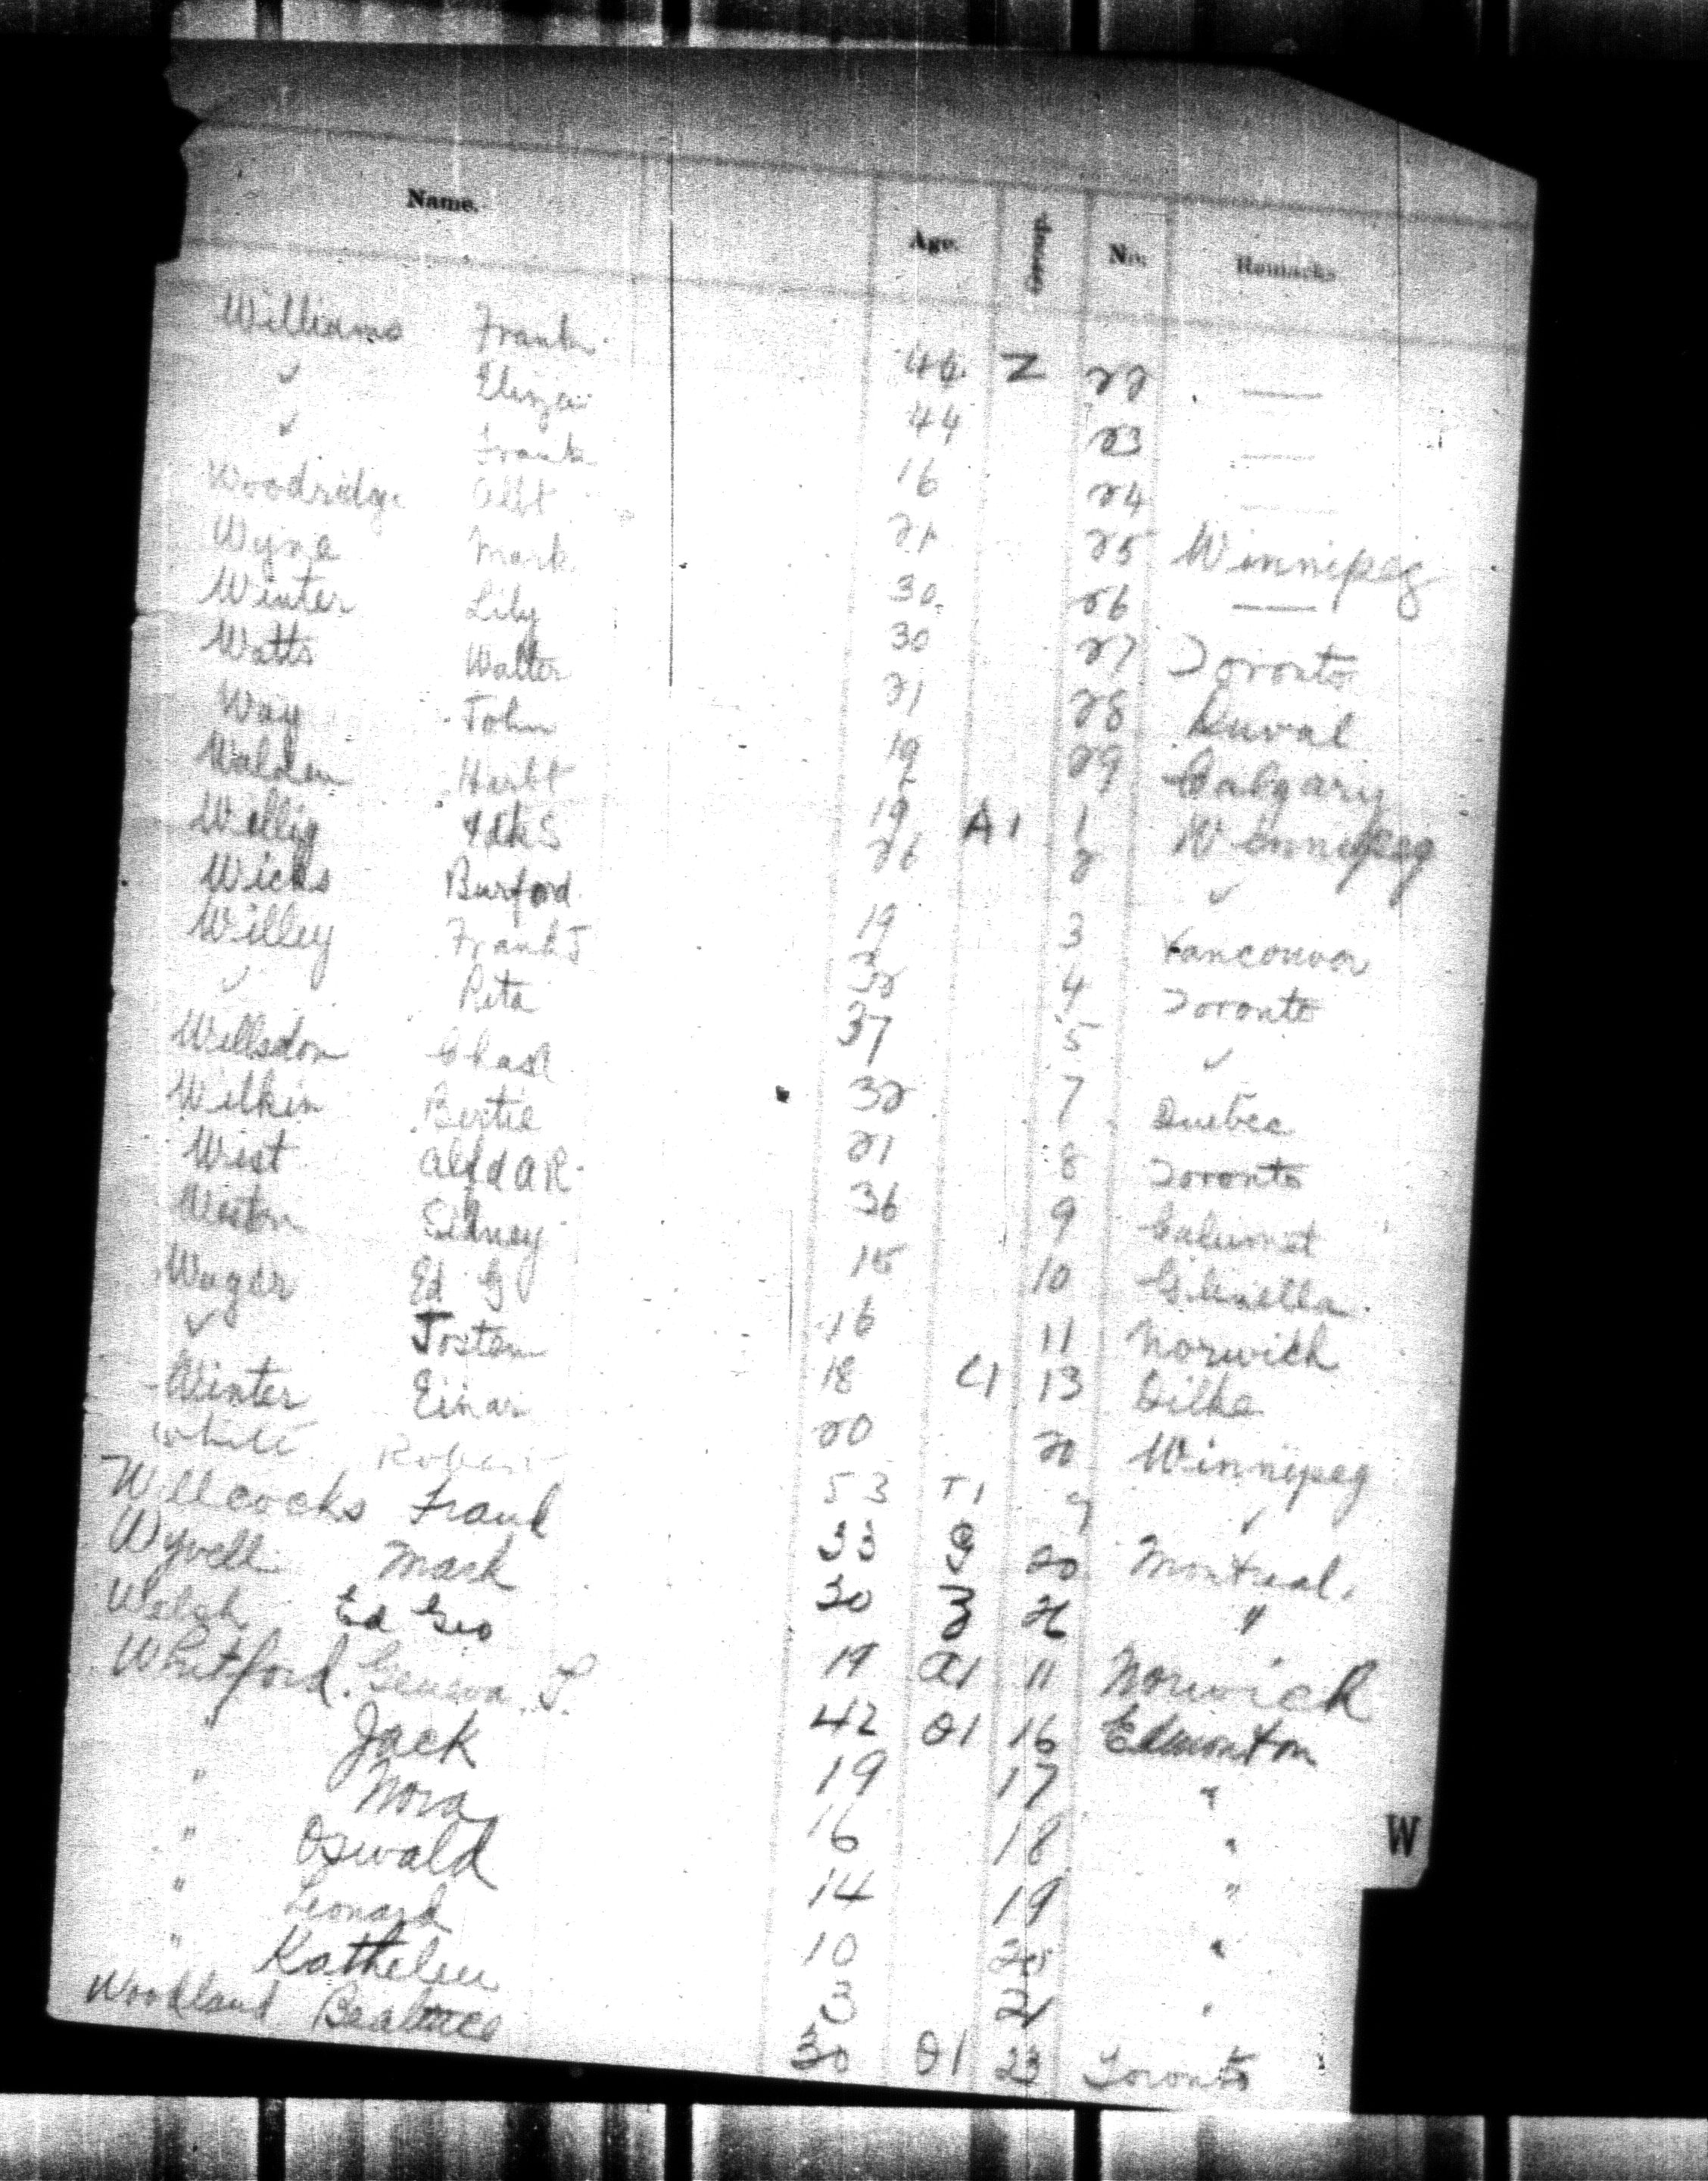 Name. Age. Group No. Remarks
Williams Frank 44 Z 22 —
✓ Eliza 44 23 —
✓ Frank 16 24 —
Woodridge Albt 21 25 Winnipeg
Wyne Mark 30 26 —
Winter Lily 30 27 Toronto
Watts Walter 21 28 Duval
Way John 19 29 Calgary
Walden Herbt 19 A1 1 Winnipeg
Willig 26 2 ✓
Wicks Burford 19 3 Vancouver
Willey Frank J 32 4 Toronto
✓ Rita 37 5 ✓
Willsdon Chas 32 7 Quebec
Wilkin Bertie 21 8 Toronto
West Alfd A R 36 9 Calumet
Weston Sidney 15 10 Glenella
Wager Ed G 16 11 Norwich
✓ Josten 18 C1 13 Dilke
Winter Einar 20 20 Winnipeg
White Robert 53 T1 7 ✓
Willcocks Frank 33 G 20 Montreal.
Wyvell Mark 30 Z 26 "
Welsh Ed Geo 19 A1 11 Norwich
Whitford. Geneva. 42 O1 16 Edmonton
" Jack 19 17 "
" Nora 16 18 "
" Oswald 14 19 "
" Leonard 10 20 "
" Kathleen 3 21 "
Woodland Beatrice 30 O1 23 Toronto
W